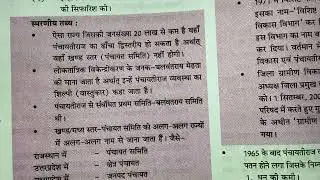 की सिफारिश की।
स्मरणीय तथ्य :
ऐसा राज्य जिसकी जनसंख्या 20 लाख से कम है वहाँ
पंचायतीराज का ढाँचा द्विस्तरीय हो सकता है अर्थात्
वहाँ खण्ड स्तर (पंचायत समिति) नहीं होगी।
लोकतान्त्रिक विकेन्द्रीकरण के जनक-बलवंतराय मेहता
को माना जाता है अर्थात् इन्हें पंचायतीराज व्यवस्था का
शिल्पी (वास्तुकार) कहा जाता है।
पंचायतीराज से संबंधित प्रथम समिति-बलवंतराय समिति
थी।
खण्ड/मध्य स्तर-पंचायत समिति को अलग-अलग राज्यों
में अलग-अलग नाम से जाना जाता हैं। जैसे-
राजस्थान में - पंचायत समिति
उत्तरप्रदेश में - क्षेत्र पंचायत
में - जनपद पंचायत
1971 में
इसका नाम-'विशि
विकास विभाग' कर
विकास एवं पंचायती
जिला ग्रामीण विका
अध्यक्ष जिला प्रमुख
का। 1 सितम्बर, 200
परिषद में करते हुए
के अधीन 'ग्रामीण
1965 के बाद पंचायतीराज
पतन होने लगा जिसके निम्न
1. धन की कमी।